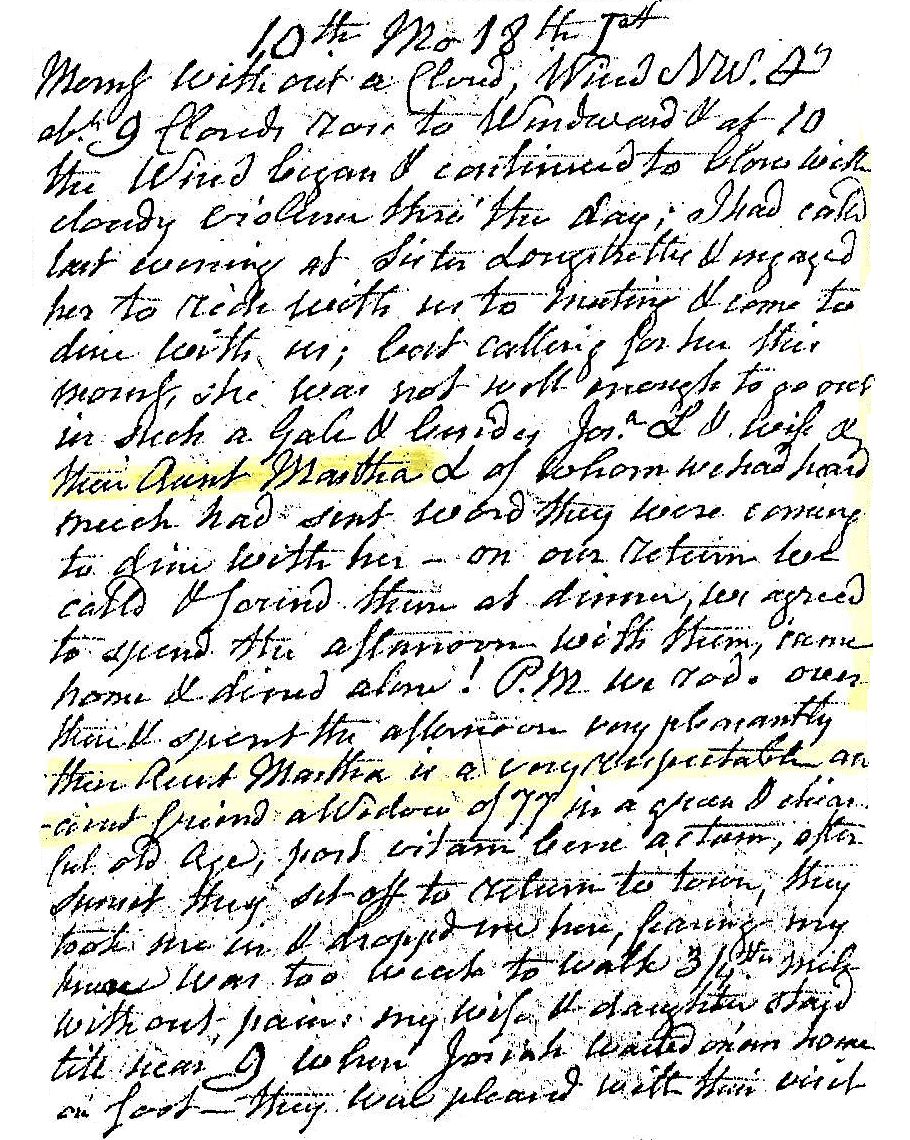 10th Mo 18th 1st
Morng without a Cloud, Wind NW. 42
abt 9 Clouds rose to Windward & at 10
the Wind began & continued to blow with
cloudy violence thro' the day; I had calld
last evening at Sister Longstreths & engaged
her to ride with us to meeting & come to
dine with us; but calling for her this
morng, she was not well enough to go out
in such a Gale & besides Jos.a L & wife &
their Aunt Martha L of whom we had heard
much had sent word they were coming
to dine with her - on our return we
calld & found them at dinner, we agreed
to spend the afternoon with them, came
home & dined alone! P.M we rode over
there & spent the afternoon very pleasantly
their Aunt Martha is a very respectable an
-cient friend a Widow of 77 in a green & chear
ful old Age, post vitam bene actam, after
sunset they set off to return to town, they
took me in & dropped me here, fearing my
knee was too weak to walk 3/4ths mile
without pain: my wife & daughter staid
till near 9 when Josiah waited on 'em home
on foot - they was pleased with their visit